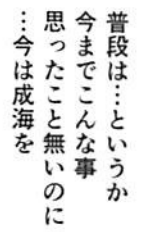 普段は…というか
今までこんな事
思ったこと無いのに
…今は成海を